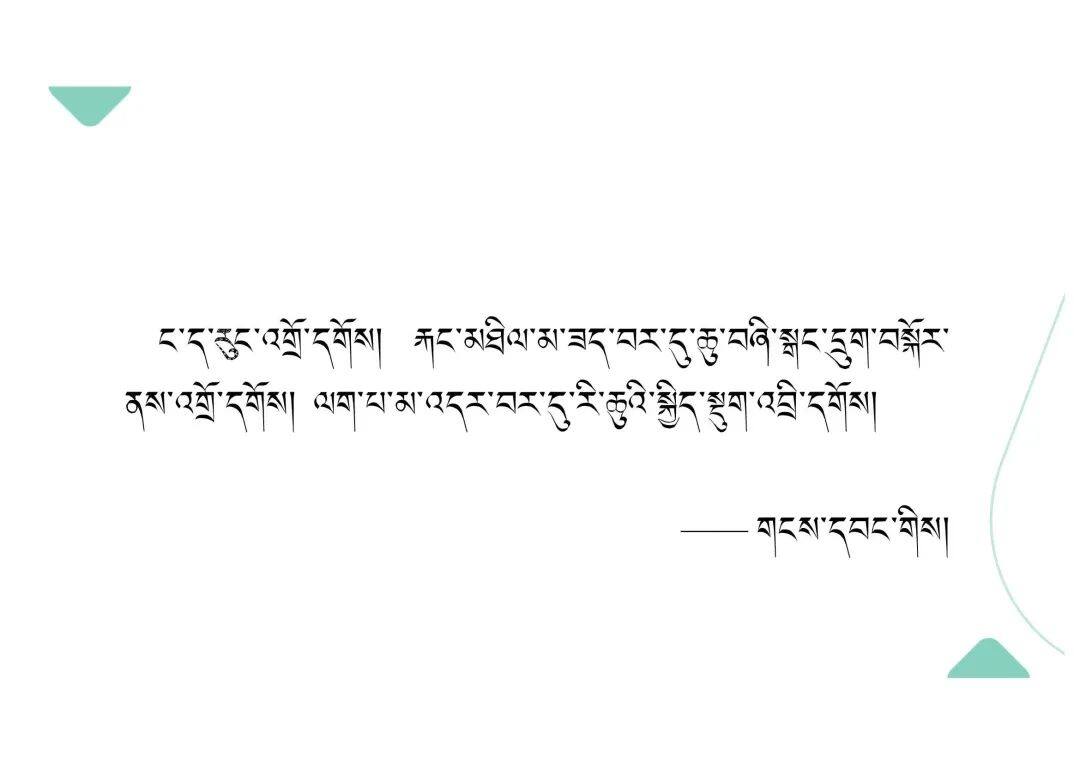 ང་ད་རུང་འགྲོ་དགོས། རྐང་མཐིལ་མ་ཟད་བར་དུ་ཆུ་བཞི་སྒང་དྲུག་བསྐོར་
ནས་འགྲོ་དགོས། ལག་པ་མ་འདར་བར་དུ་རི་ཆུའི་སྐྱིད་སྡུག་འབྲི་དགོས།
—— གངས་དབང་གིས།